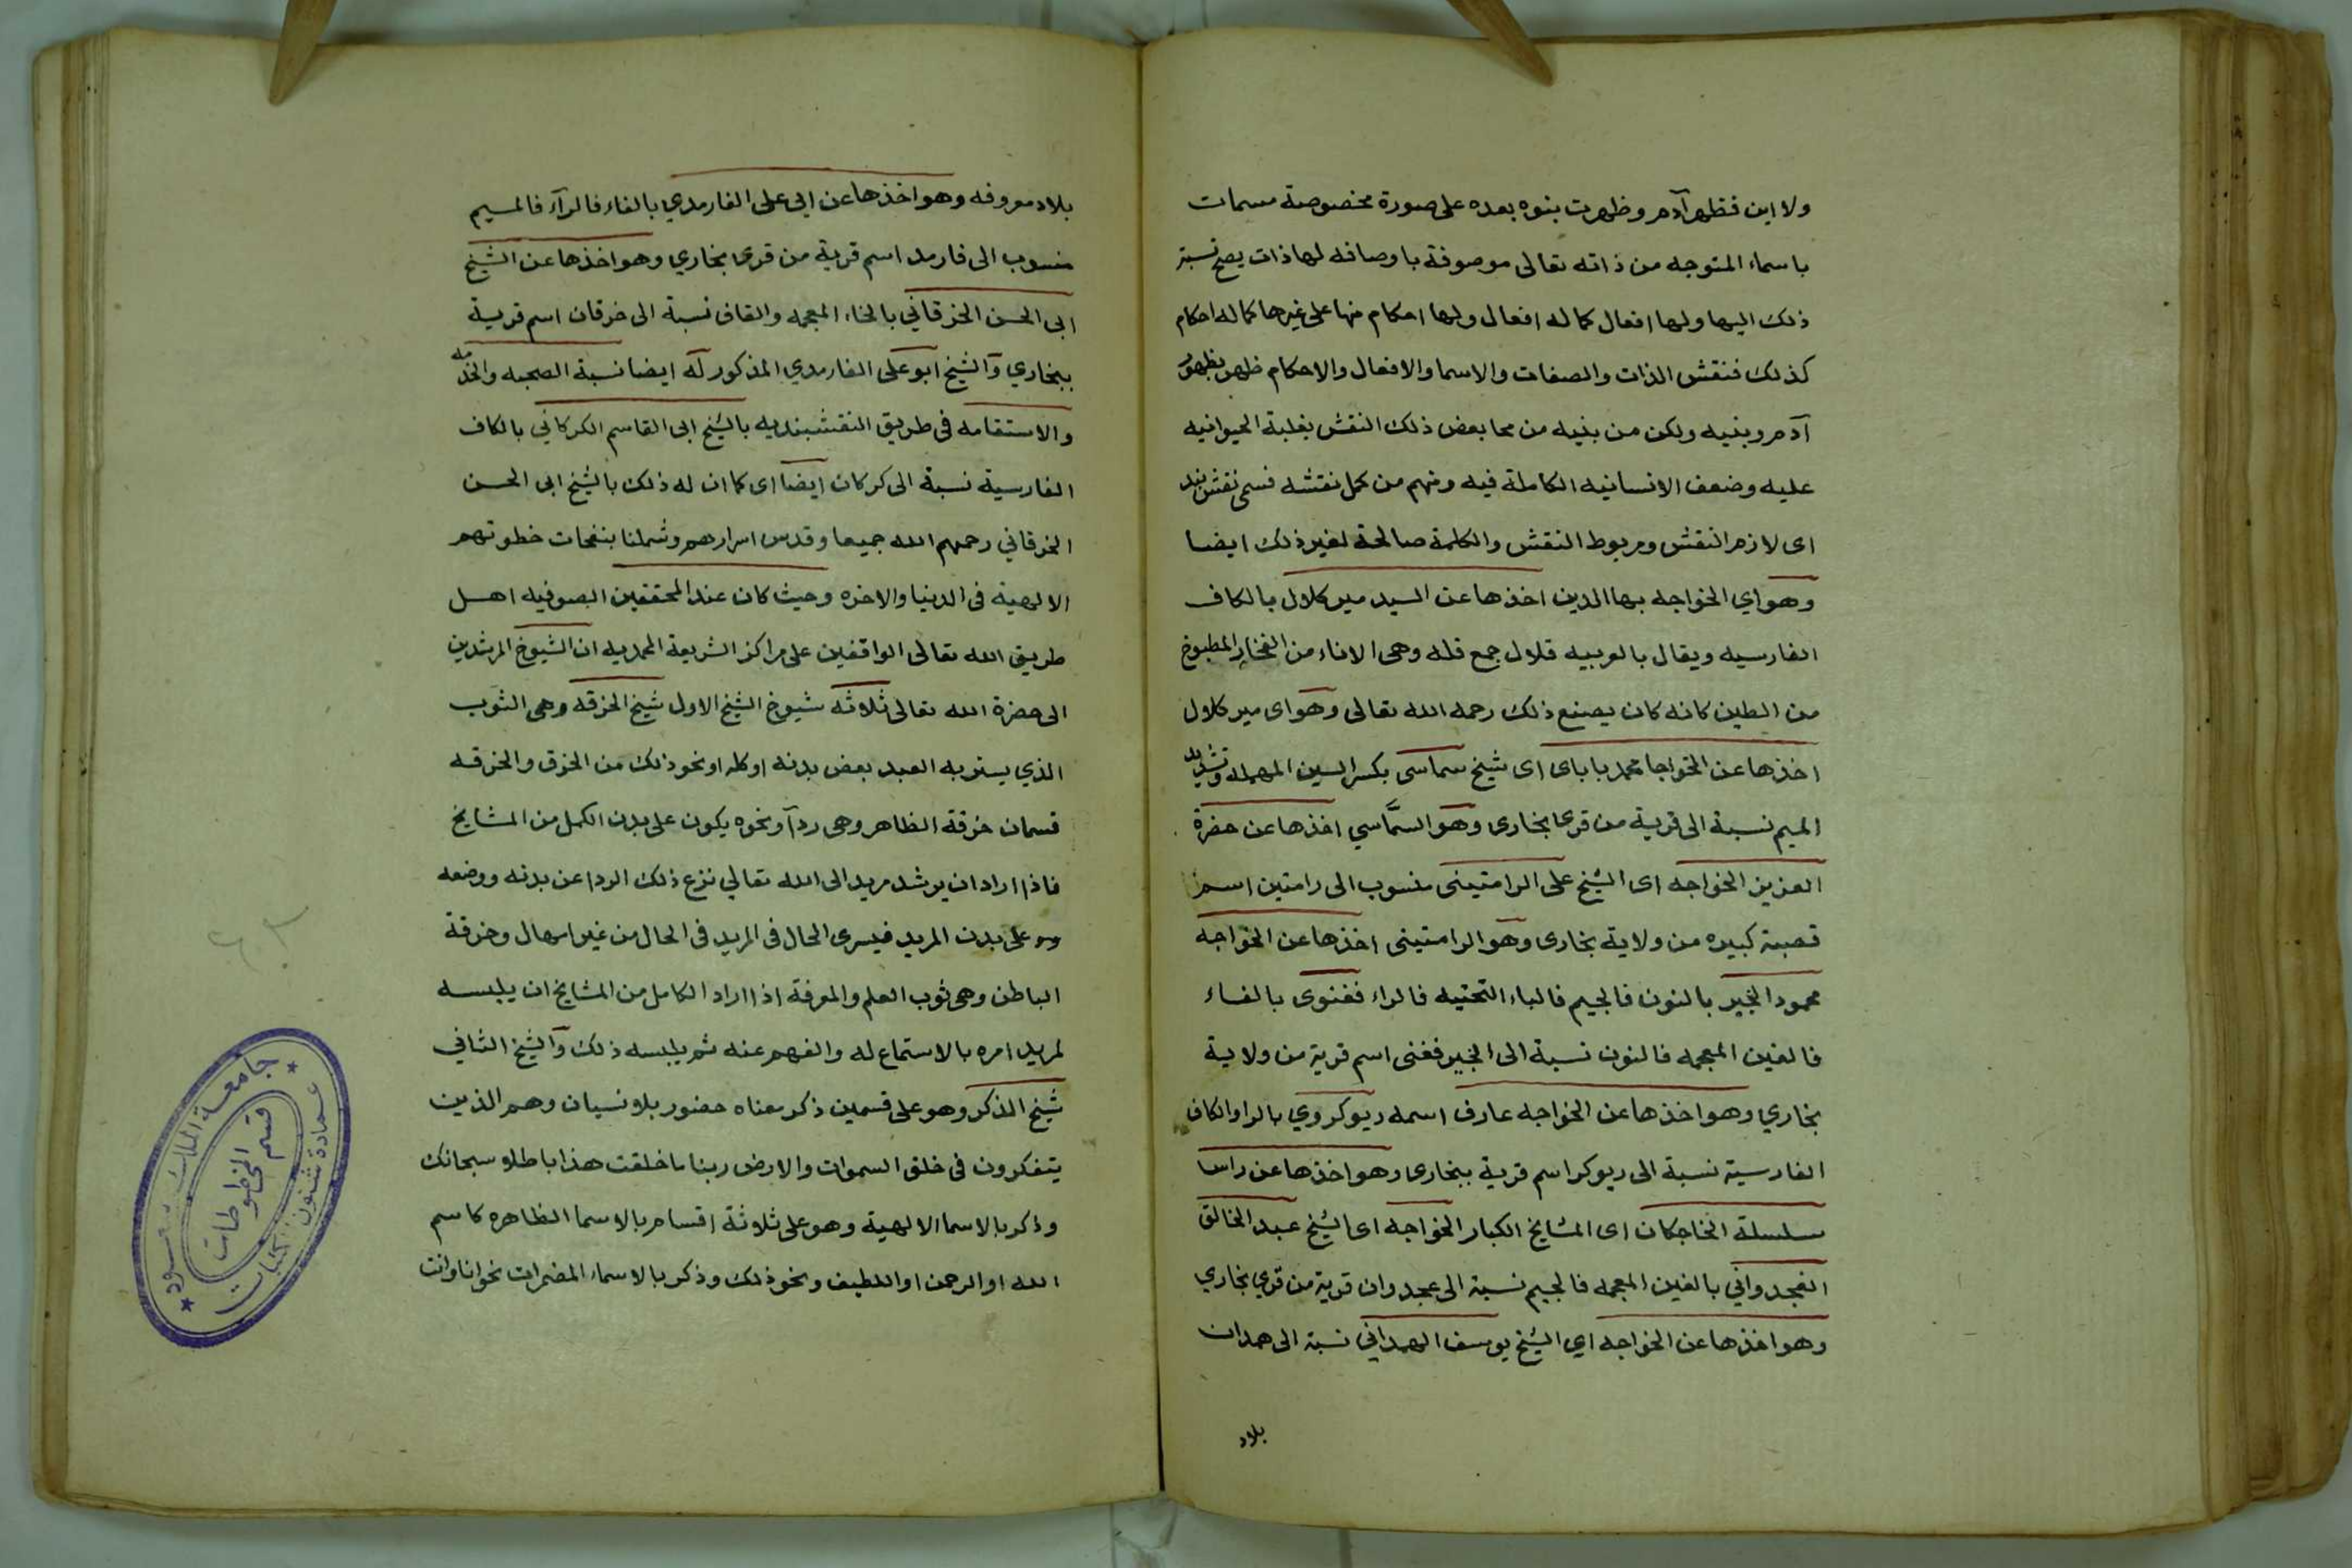 ولا اين فظهر آدم وظهرت بنوه بعده على صورة مخصوصة مسمات
باسماء المتوجه من ذاته تعالى موصوفة باوصافه لها ذات يصح نسبة
ذلك اليها ولها افعال كما له افعال ولها احكام منها على غيرها كما له احكام
كذلك فنقش الذات والصفات والاسما والافعال والاحكام ظهر بظهور
آدم وبنيه ولكن من بنيه من محا بعض ذلك النقش بغلبة الحيوانيه
عليه وضعف الانسانيه الكاملة فيه ومنهم من كمل نقشه فسمى نقش بند
اى لازم النقش ومربوط النقش والكلمة صالحة لغير ذلك ايضا
وهو اي الخواجه بها الدين اخذها عن السيد مير كلال بالكاف
الفارسيه ويقال بالعربيه قلال جمع قله وهى الاناء من الفخار المطبوخ
من الطين كانه كان يصنع ذلك رحمه الله تعالى وهو اى مير كلال
اخذها عن الخواجا محمد باباى اى شيخ سماسى بكسر السين المهمله وتشديد
الميم نسبة الى قرية من قرى بخارى وهو السمّاسي اخذها عن حضرة
العزيز الخواجه اى الشيخ على الرامتينى منسوب الى رامتين اسم
قصبة كبيره من ولاية بخارى وهو الرامتينى اخذها عن الخواجه
محمود الخير بالنون فالجيم فالياء التحتيه فالراء فغنوى بالفاء
فالغين المعجمه فالنون نسبة الى الخير فغنى اسم قرية من ولاية
بخاري وهو اخذها عن الخواجه عارف اسمه ريوكروي بالرا والكاف
الفارسية نسبة الى ريوكر اسم قرية ببخارى وهو اخذها عن راسا
سلسلة الخاجكان اى المشايخ الكبار الخواجه اى الشيخ عبد الخالق
الغجدواني بالغين المعجمه فالجيم نسبة الى عجدوان قرية من قري بخاري
وهو اخذها عن الخواجه اي الشيخ يوسف الهمداني نسبة الى همدان
بلاد
بلاد معروفه وهو اخذها عن ابي على الفارمدي بالفاء فالرآء فالميم
منسوب الى فارمد اسم قرية من قرى بخاري وهو اخذها عن الشيخ
ابى الحسن الخرقاني بالخاء المعجمه والقاف نسبة الى خرقان اسم قرية
ببخاري وآلشيخ ابو على الفارمدي المذكور له ايضا نسبة الصحبه والخدمه
والاستقامه فى طريق النقشبنديه بالشيخ ابى القاسم الكركاني بالكاف
الفارسية نسبة الى كركان ايضا اى كما ان له ذلك بالشيخ ابى الحسن
الخرقاني رحمهم الله جميعا وقدس اسرارهم وشملنا بنفحات خطوتهم
الالهية فى الدنيا والاخره وحيث كان عند المحققين الصوفيه اهل
طريق الله تعالى الواقفين على مراكز الشريعة المحمديه ان الشيوخ المرشدين
الى حضرة الله تعالى ثلاثه شيوخ الشيخ الاول شيخ الخرقه وهى الثوب
الذي يستر به العبد بعض بدنه او كله او نحو ذلك من الخرق والخرقه
قسمان خرقة الظاهر وهى ردآ ونحوه يكون على بدن الكمل من المشايخ
فاذا اراد ان يرشد مريدا الى الله تعالي نزع ذلك الردا عن بدنه ووضعه
على بدن المريد فيسرى الحال فى المريد فى الحال من غير امهال وخرقة
الباطن وهى ثوب العلم والمعرفة اذا اراد الكامل من المشايخ ان يلبسه
لمريد امره بالاستماع له والفهم عنه ثم يلبسه ذلك وآلشيخ الثاني
شيخ الذكر وهو على قسمين ذكر معناه حضور بلا نسيان وهم الذين
يتفكرون فى خلق السموات والارض ربنا ما خلقت هذا باطلا سبحانك
وذكر بالاسما الالهية وهو على ثلاثة اقسام بالاسما الظاهره كاسم
الله او الرحمن او اللطيف ونحو ذلك وذكر بالاسماء المضمرات نحو انا وانت
جامعة الملك سعود
عمادة شئون المكتبات
قسم المخطوطات